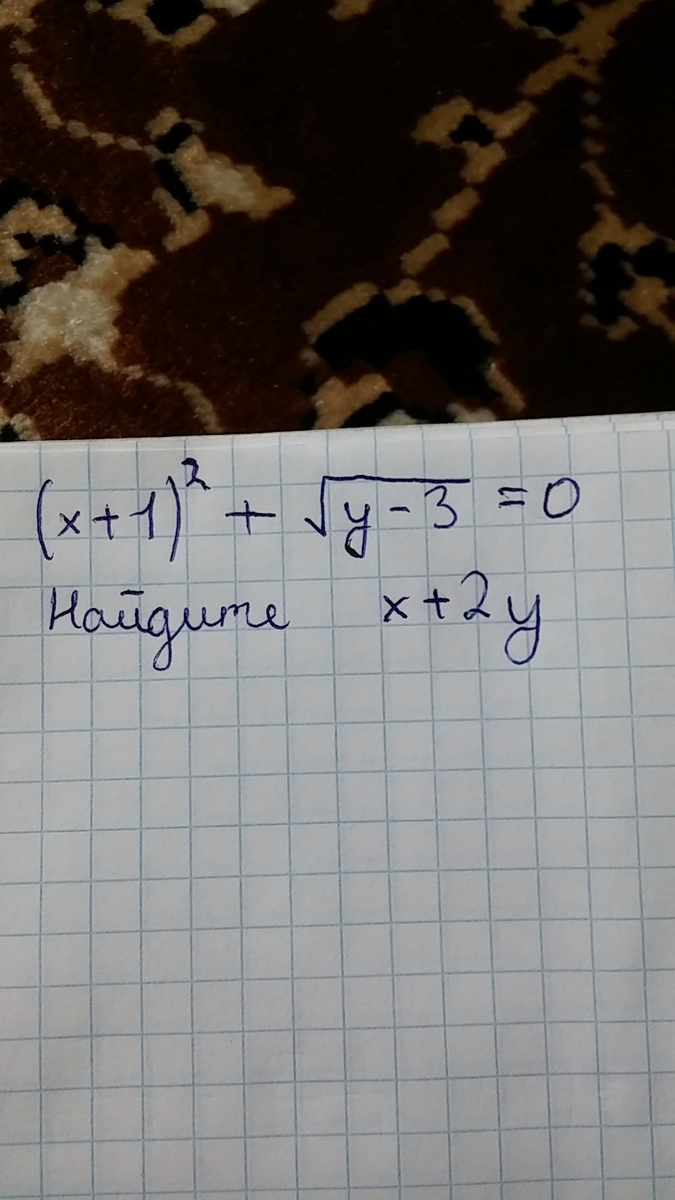 (x+1)² + √(y-3) = 0
Найдите x+2y